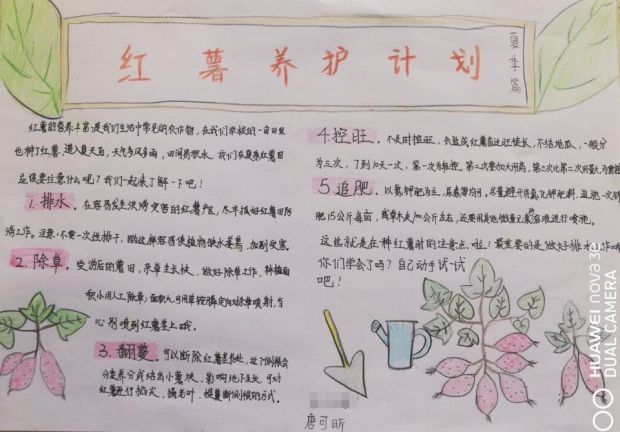 红薯养护计划
夏季篇
红薯的营养丰富,是我们生活中常见的农作物,在我们学校的一亩田里
也种了红薯.进入夏天后,天气多风多雨,田间易积水.我们在夏季红薯田
应该要注意什么呢?我们一起来了解一下吧!
1.排水.在容易发生洪涝灾害的红薯产区,尽早搞好红薯田防
涝工作.注意:不要一次性排干,
2.除草.受涝后的薯田,杂草生长快.做好除草工作.种植面
积小用人工除草,面积大,可用草铵膦定向对杂草喷射,当
心别喷到红薯茎上哦.
3.翻蔓.可以断除红薯
分走养分或结出小薯块.影响地下生长.可对
红薯进行掐尖、摘老叶、提蔓断侧根的方式.
4.控旺.不及时控旺,会造成红薯在过旺徒长,不结地瓜,一般分
为三次,7到10天一次,第一次为轻控.第二次要加大用药,第三次比第二次用量大为重控
5.追肥.以氮钾肥为主,尿素等均可.尽量避开用氯化钾肥料,
肥15公斤每亩,或草木灰100公斤左右,还要用其他微量元素溶液进行喷施.
这些就是在种红薯时的注意点啦!最重要的是做好排水工作哦
你们学会了吗?自己动手试一试
吧!
唐可昕
HUAWEI nova 3e
DUAL CAMERA